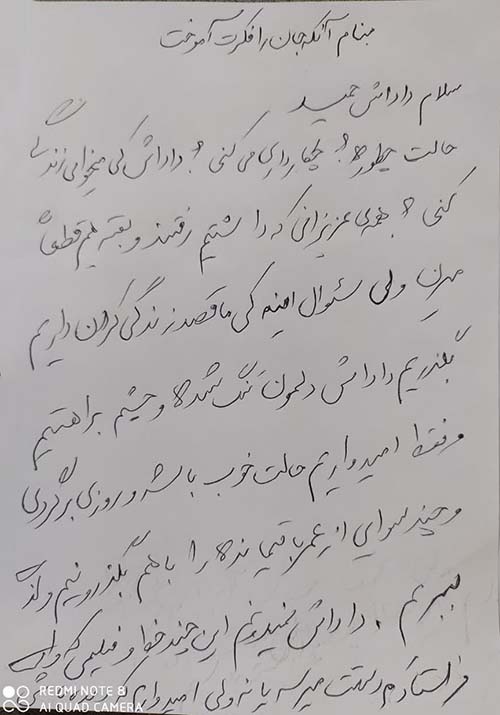 بنام آنکه جان را فکرت آموخت
سلام داداش حمید
حالت چطوره؟ چکار داری می کنی؟ داداش کی میخوای زندگی
کنی؟ همه ی عزیزانی که داشتیم رفتند و بقیه هم قطعا
میرن ولی سئوال اینه کی ما قصد زندگی کردن داریم
بگذریم داداش دلمون تنگ شده و چشم براهتیم
و فقط امیدواریم حالت خوب باشه و روزی برگردی
و چند سوایی از عمر باقیمانده را با هم بگذرونیم و لذت
ببریم. داداش نمیدونم این چند خط و فیلمی که برات
فرستادم دستت میرسه یا نه ولی امیدوارم که
REDMI NOTE 8
AI QUAD CAMERA